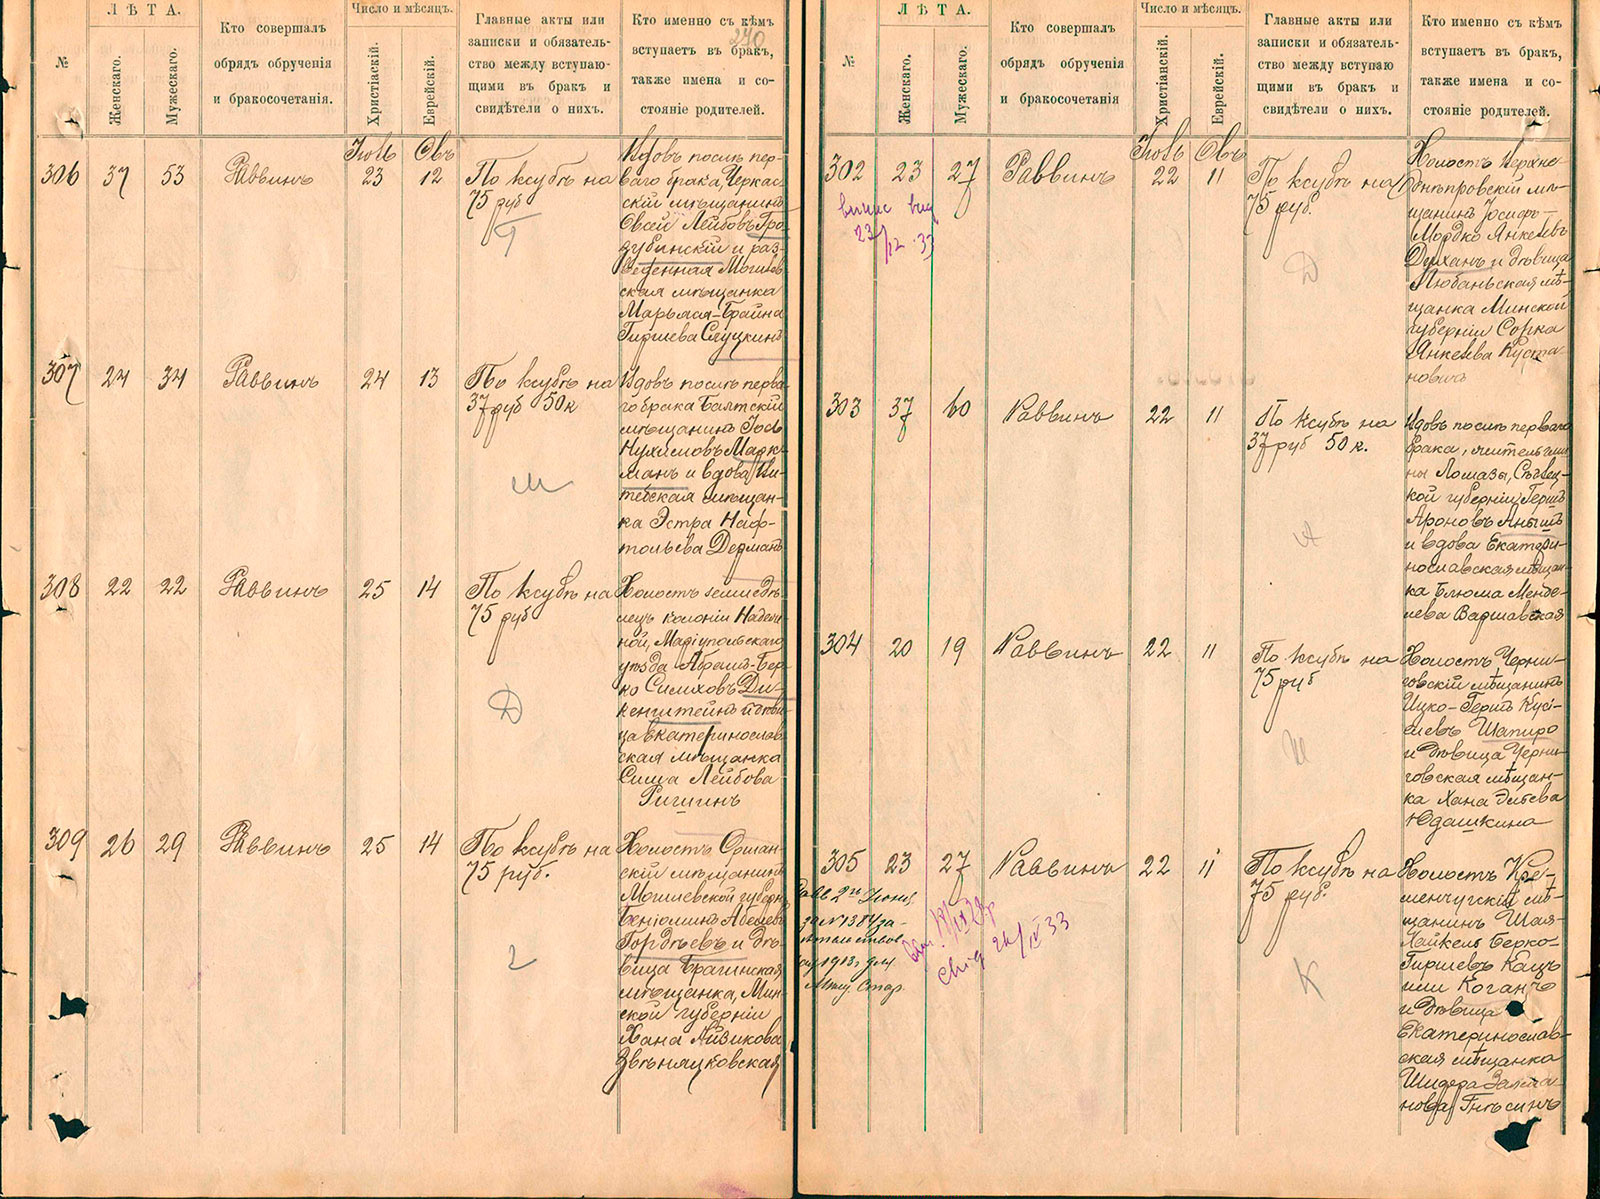 ЛѢТА.
Число и мѣсяцъ.
№
Женскаго.
Мужескаго.
Кто совершалъ
обрядъ обрученія
и бракосочетанія.
Христіаскій.
Еврейскій.
Главные акты или
записки и обязатель-
ство между вступаю-
щими въ бракъ и
свидѣтели о нихъ.
Кто именно съ кѣмъ
вступаетъ въ бракъ,
также имена и со-
стояніе родителей.
270
Іюль Овъ
306 37 53 Раввинъ 23 12
По ксубѣ на
75 руб
Вдовъ послѣ пер-
ваго брака, Черкас-
скій мѣщанинъ
Овсей Лейбовъ Гро-
зубинскій и раз-
веденная Могилев-
ская мѣщанка
Марьяся-Брайна
Гиршева Слуцкинъ
307 24 34 Раввинъ 24 13
По ксубѣ на
37 руб 50 к
М
Вдовъ послѣ перва-
го брака Балтскій
мѣщанинъ Іось
Нухимовъ Марк-
манъ и вдова Ви-
тебская мѣщан-
ка Эстра Наф-
тольева Дерманъ
308 22 22 Раввинъ 25 14
По ксубѣ на
75 руб
Д
Холостъ земледѣ-
лецъ колоніи Надеж-
ной, Маріупольскаго
уѣзда Абрамъ-Бер-
ко Симховъ Ди-
кенштейнъ и дѣви-
ца Екатеринослав-
ская мѣщанка
Сима Лейбова
Ригшинъ
309 26 29 Раввинъ 25 14
По ксубѣ на
75 руб.
Холостъ Оршан-
скій мѣщанинъ
Могилевской губерн.
Беніоминъ Абелевъ
Гордѣевъ и дѣ-
вица Брагинская
мѣщанка, Мин-
ской губерніи
Хана Айзикова
Звѣняцковская
ЛѢТА.
Число и мѣсяцъ.
№
Женскаго.
Мужескаго.
Кто совершалъ
обрядъ обрученія
и бракосочетанія
Христіанскій.
Еврейскій.
Главные акты или
записки и обязатель-
ство между вступаю
щими въ бракъ и
свидѣтели о нихъ.
Кто именно съ кѣмъ
вступаетъ въ бракъ,
также имена и со-
стояніе родителей.
Іюль Овъ
302 23 27 Раввинъ 22 11
23/12 33
По ксубѣ на
75 руб.
Д
Холостъ Верхне-
днѣпровскій мѣ-
щанинъ Іосифъ-
Мордко Янкелевъ
Дерханъ и дѣвица
Любаньская мѣ-
щанка Минской
губерніи Сорка
Янкелева Куста-
новичъ
303 37 60 Раввинъ 22 11
По ксубѣ на
37 руб 50 к.
А
Вдовъ послѣ перваго
брака, житель гми-
ны Ломазы, Сѣдлец-
кой губерніи Гершъ
Ароновъ Аньшъ
и вдова Екатери-
нославская мѣщан-
ка Блюма Менде-
лева Варшавская
304 20 19 Раввинъ 22 11
По ксубѣ на
75 руб
Ш
Холостъ Черни-
говскій мѣщанинъ
Ицко-Гершъ Кусі-
елевъ Шапиро
и дѣвица Черни-
говская мѣщан-
ка Хана Эліева
Юдашкина
305 23 27 Раввинъ 22 11
2го Іюня
за № 1384 за-
1913 г для
По ксубѣ на
75 руб.
К
Холостъ Кре-
менчугскій мѣ-
щанинъ Шая-
Хайкель Берко-
Гиршевъ Кацъ
или Коганъ
и дѣвица
Екатеринослав-
ская мѣщанка
Шидера Залма-
нова Гнѣсинъ